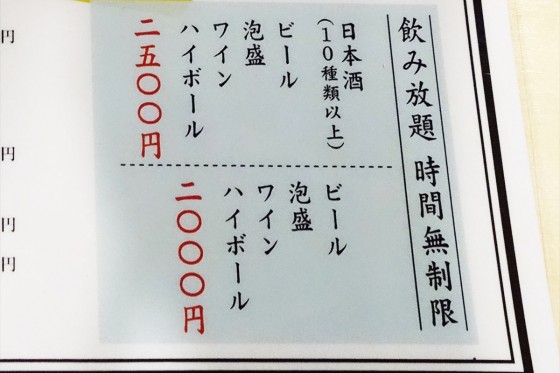 飲み放題 時間無制限
日本酒
(10種類以上)
ビール
泡盛
ワイン
ハイボール
二五〇〇円
ビール
泡盛
ワイン
ハイボール
二〇〇〇円
円
円
円
円